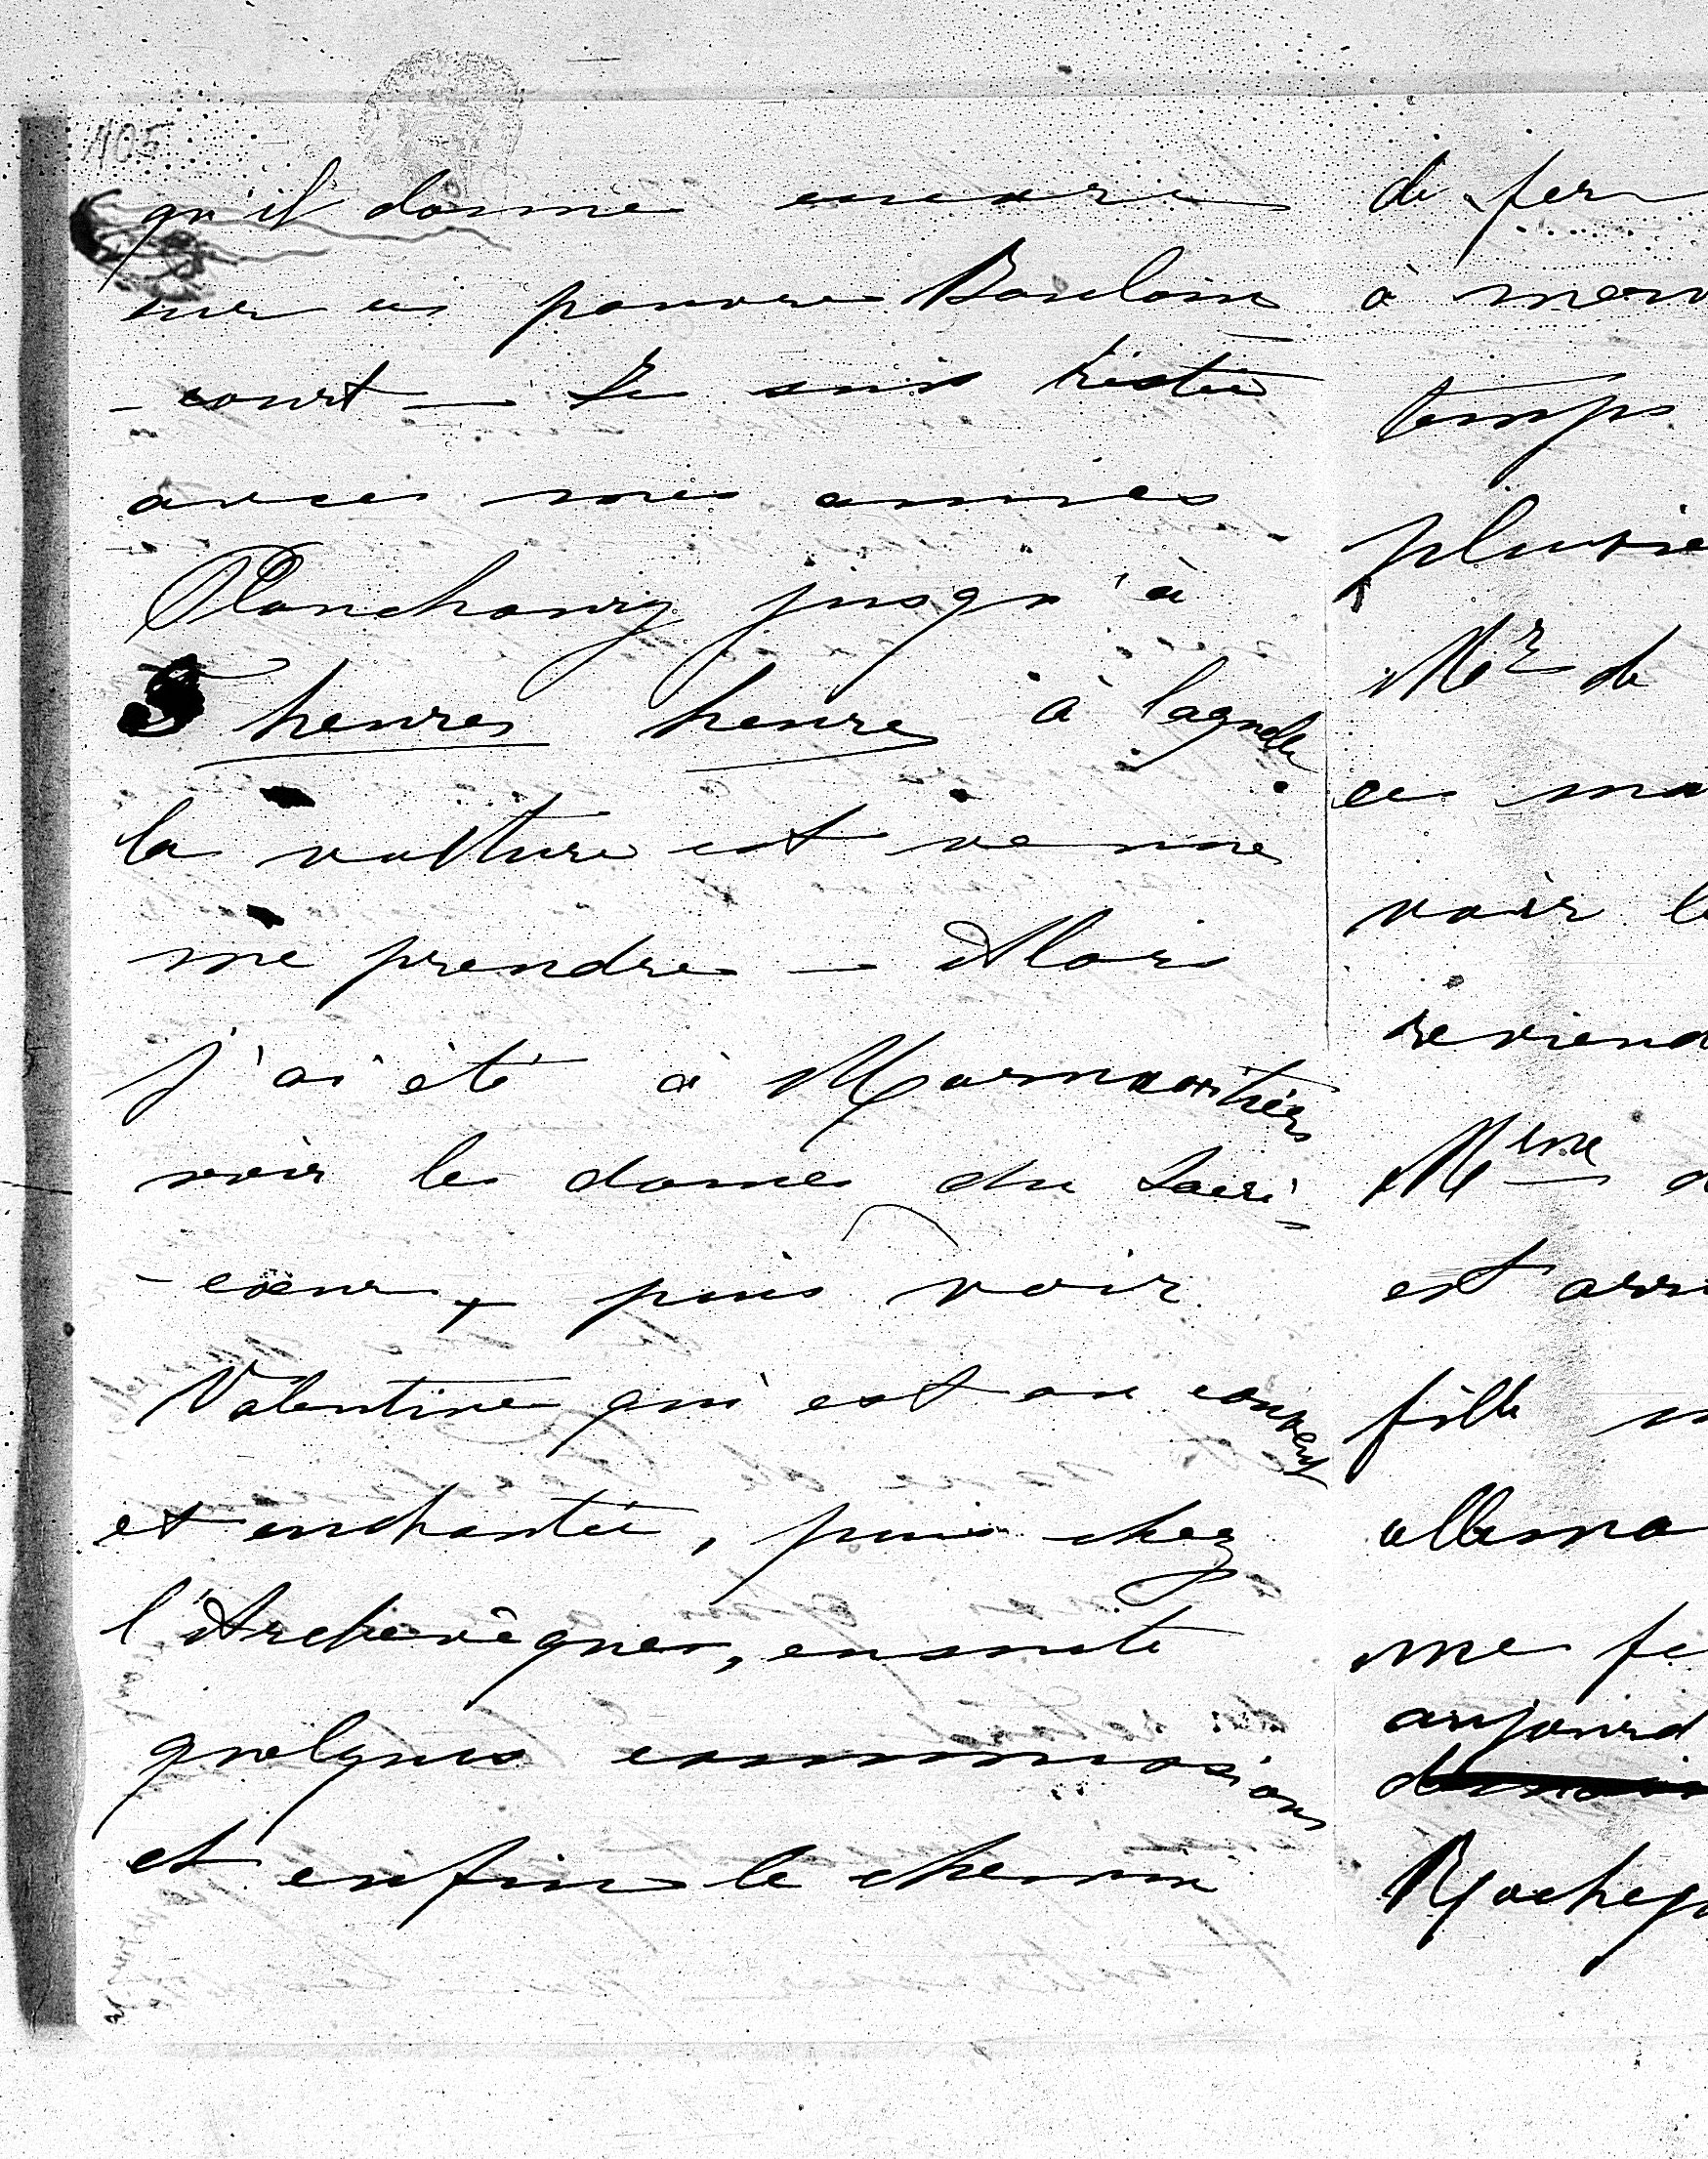 105
qu'il donne encore
sur ce pauvre Boulain
- court — Je suis restée
avec mes amies
Planchoury jusqu'à
5 heures heure à laquelle
la voiture est venue
me prendre — Alors
j'ai été à Marmoutiers
voir les dames du Sacré
- coeur, puis voir
Valentine qui est au couvent
et enchantée, puis chez
l'Archevêque, ensuite
quelques commissions
et enfin le chemin
de fer
à
temps
Mr de
ce
voir
Mme
est
fille
me